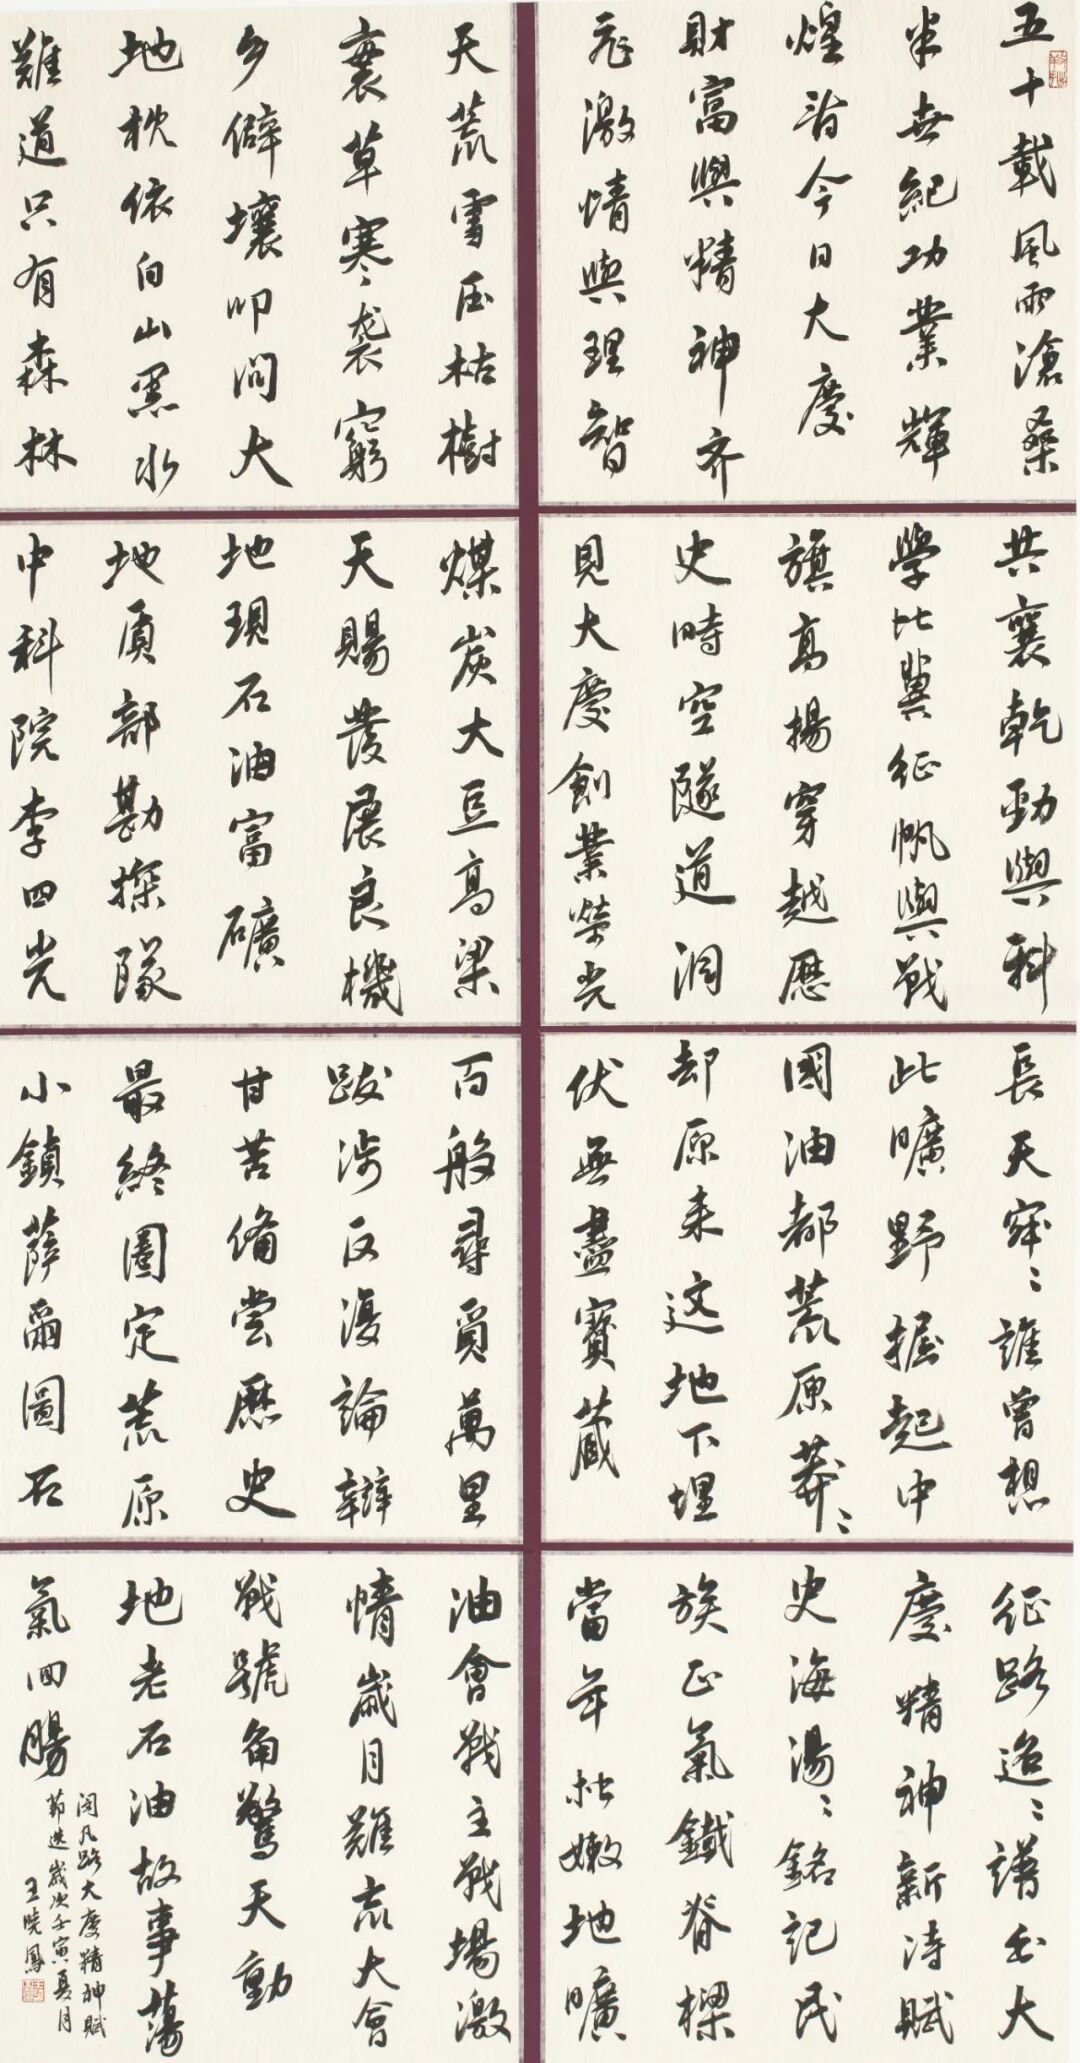 五十載風雨滄桑
半世紀功業輝
煌看今日大慶
財富與精神齐
飛激情與理智
共襄乾勁與科
學比翼征帆與戰
旗高揚穿越歷
史時空隧道洞
見大慶創業榮光
長天穹〻誰曾想
此曠野掘起中
國油都荒原莽〻
却原来這地下埋
伏無盡寶藏
征路迢〻譜出大
慶精神新詩賦
史海湯〻銘記民
族正氣鐵脊樑
當年松嫩地曠
天荒雪压枯樹
衰草寒袭窮
乡僻壤叩問大
地枕依白山黑水
難道只有森林
煤炭大豆高粱
天賜發展良機
地現石油富礦
地質部勘探隊
中科院李四光
百般尋覓萬里
跋涉反復論辯
甘苦備尝歷史
最終圈定荒原
小鎮薩爾圖石
油會戰主戰場激
情歲月難忘大會
戰號角驚天動
地老石油故事蕩
氣回腸
凡路大慶精神賦
節選歲次壬寅夏月
王曉鳳